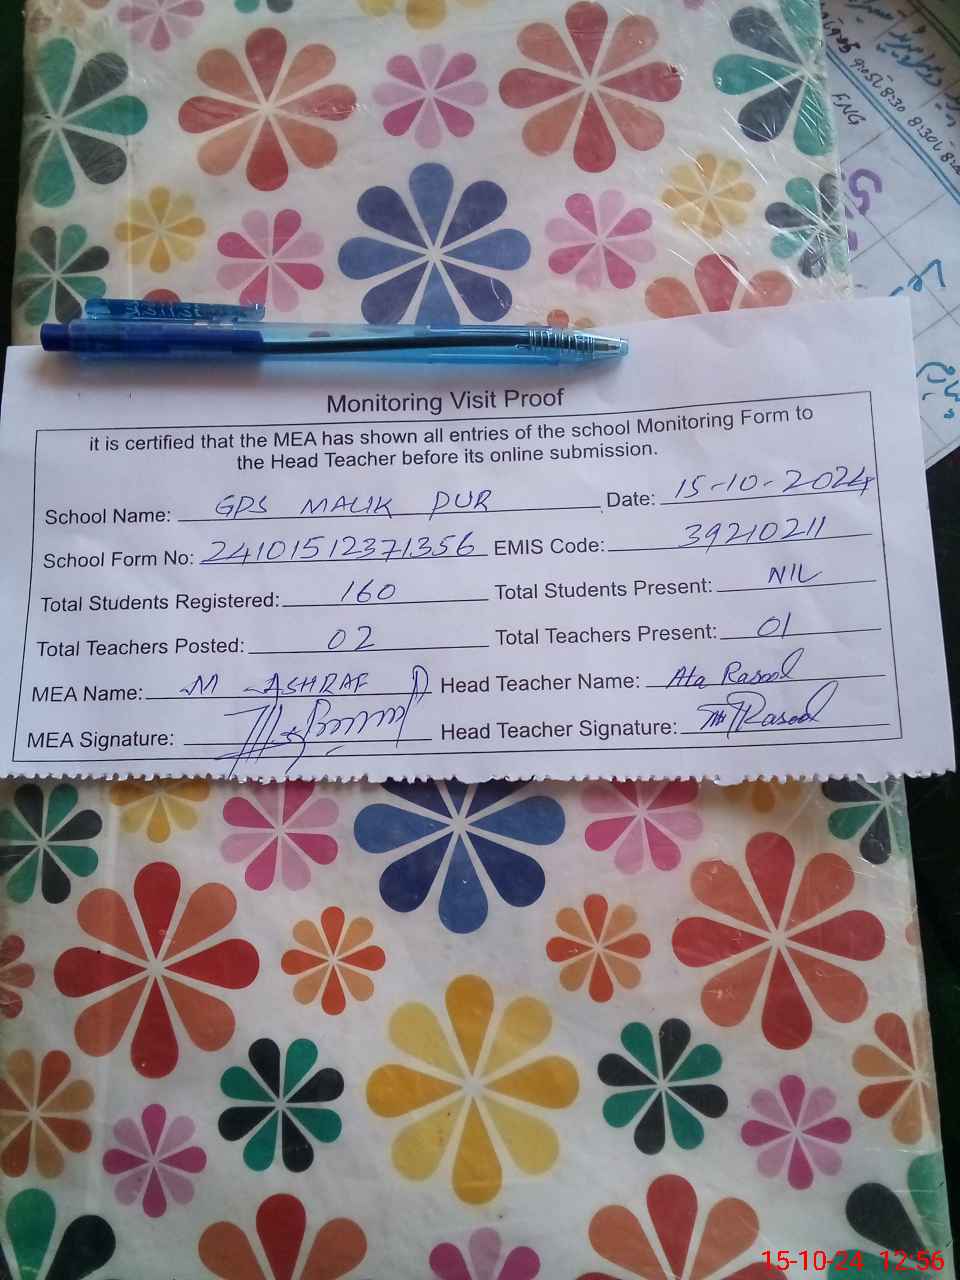 ENG
Monitoring Visit Proof
it is certified that the MEA has shown all entries of the school Monitoring Form to
the Head Teacher before its online submission.
School Name: GPS MALIK PUR Date: 15-10-2024
School Form No: 24101512371356 EMIS Code: 39210211
Total Students Registered: 160 Total Students Present: NIL
Total Teachers Posted: 02 Total Teachers Present: 01
MEA Name: M ASHRAF Head Teacher Name: Ata Rasool
MEA Signature: Head Teacher Signature: Rasool
15-10-24 12:56